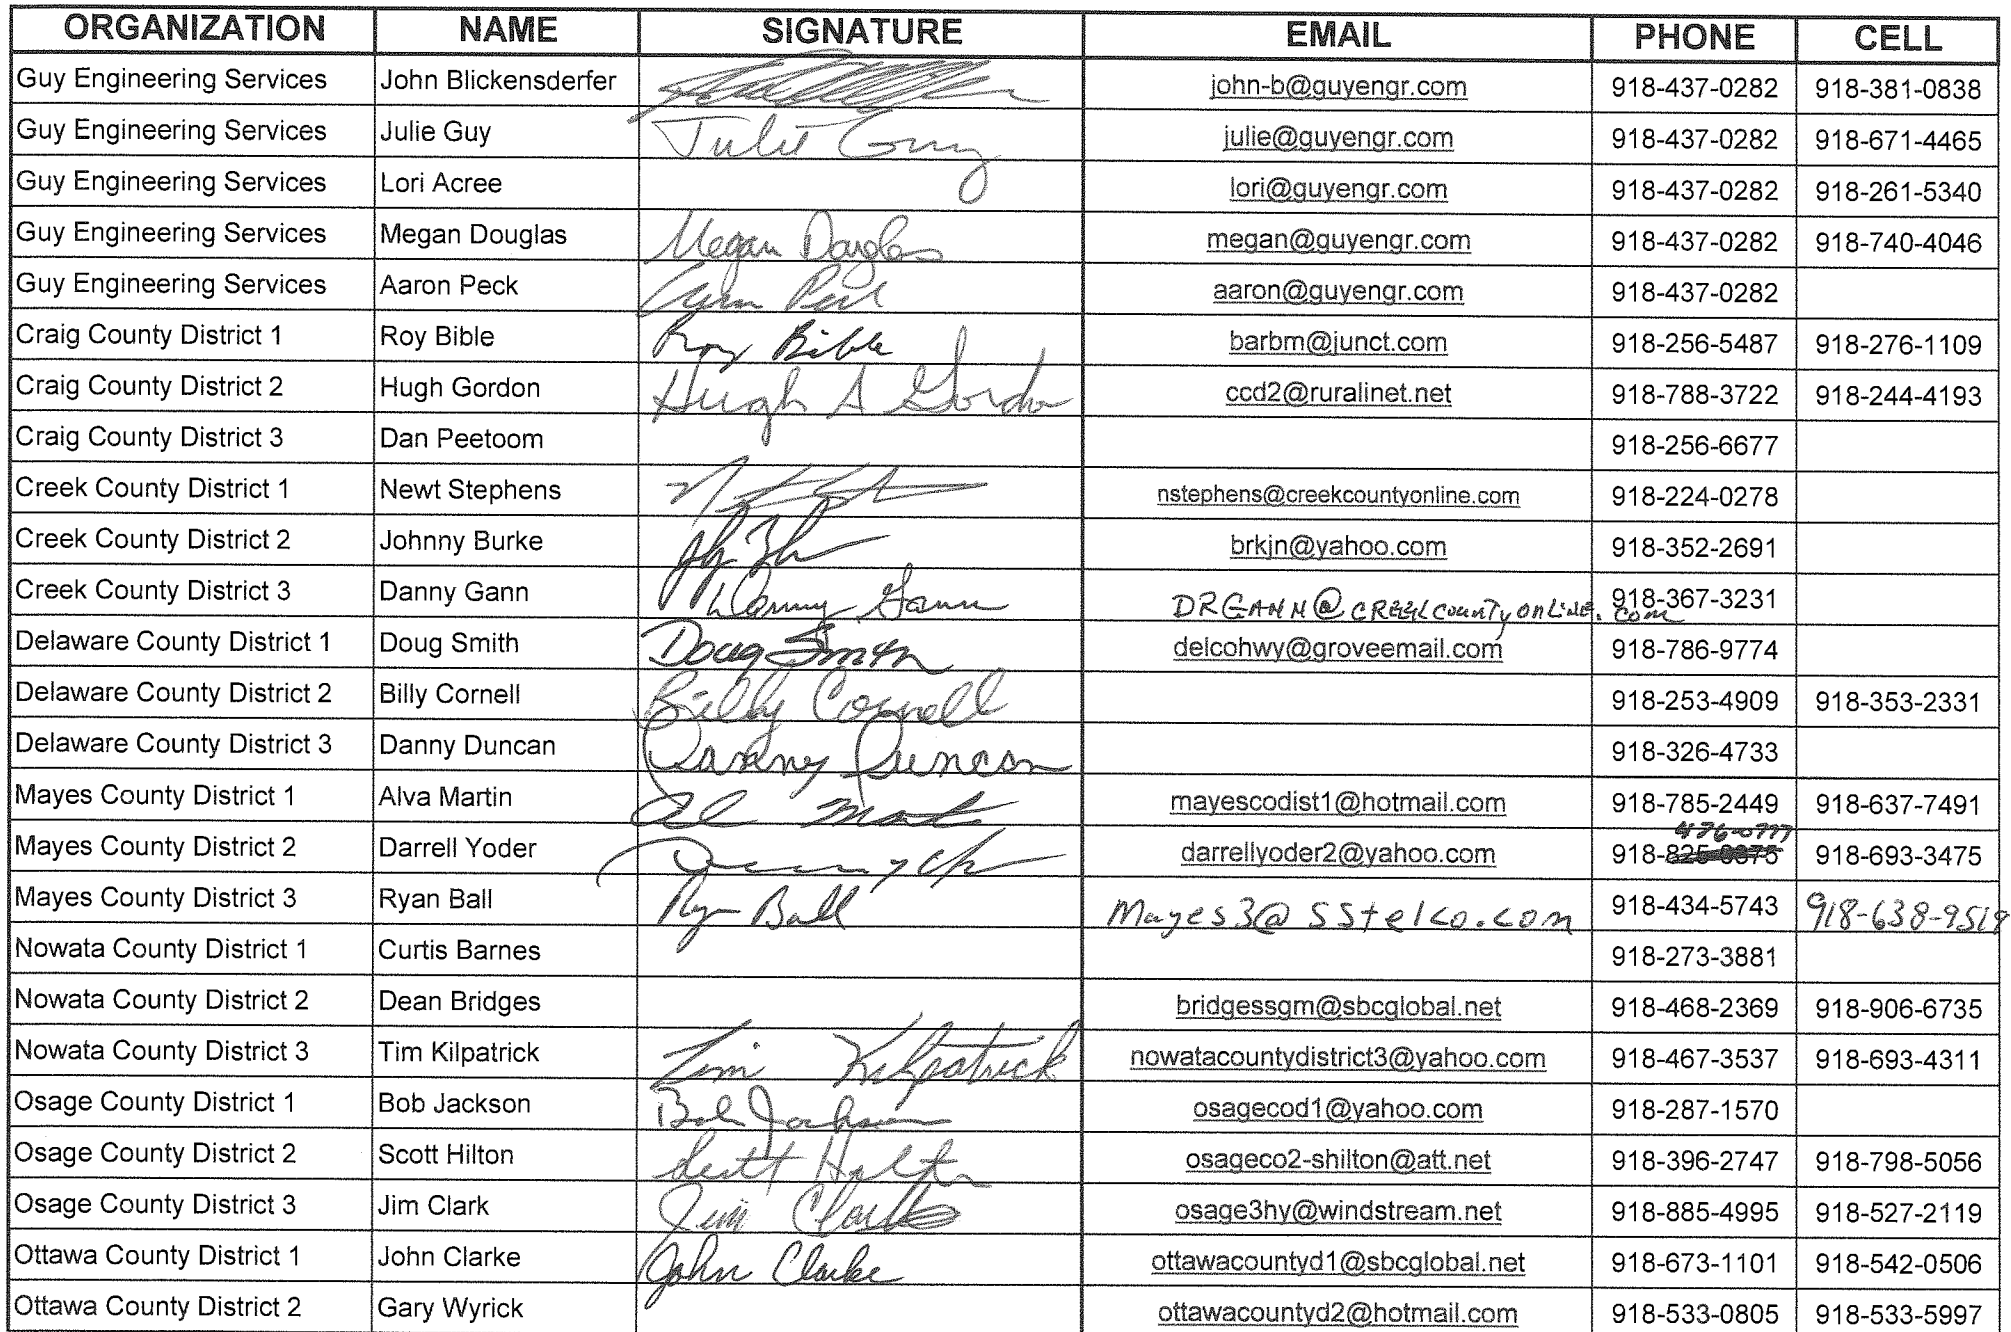 ORGANIZATION NAME SIGNATURE EMAIL PHONE CELL
Guy Engineering Services John Blickensderfer john-b@guyengr.com 918-437-0282 918-381-0838
Guy Engineering Services Julie Guy Julie Guy julie@guyengr.com 918-437-0282 918-671-4465
Guy Engineering Services Lori Acree lori@guyengr.com 918-437-0282 918-261-5340
Guy Engineering Services Megan Douglas Megan Douglas megan@guyengr.com 918-437-0282 918-740-4046
Guy Engineering Services Aaron Peck Aaron Peck aaron@guyengr.com 918-437-0282
Craig County District 1 Roy Bible Roy Bible barbm@junct.com 918-256-5487 918-276-1109
Craig County District 2 Hugh Gordon Hugh A Gordon ccd2@ruralinet.net 918-788-3722 918-244-4193
Craig County District 3 Dan Peetoom 918-256-6677
Creek County District 1 Newt Stephens nstephens@creekcountyonline.com 918-224-0278
Creek County District 2 Johnny Burke brkjn@yahoo.com 918-352-2691
Creek County District 3 Danny Gann Danny Gann DRGANN@CREEKCOUNTYONLINE.COM 918-367-3231
Delaware County District 1 Doug Smith Doug Smith delcohwy@groveemail.com 918-786-9774
Delaware County District 2 Billy Cornell Billy Cornell 918-253-4909 918-353-2331
Delaware County District 3 Danny Duncan Danny Duncan 918-326-4733
Mayes County District 1 Alva Martin Al Martin mayescodist1@hotmail.com 918-785-2449 918-637-7491
476-0777
Mayes County District 2 Darrell Yoder darrellyoder2@yahoo.com 918- 918-693-3475
Mayes County District 3 Ryan Ball Ryan Ball Mayes3@sstelco.com 918-434-5743 918-638-9519
Nowata County District 1 Curtis Barnes 918-273-3881
Nowata County District 2 Dean Bridges bridgessgm@sbcglobal.net 918-468-2369 918-906-6735
Nowata County District 3 Tim Kilpatrick Tim Kilpatrick nowatacountydistrict3@yahoo.com 918-467-3537 918-693-4311
Osage County District 1 Bob Jackson Bob Jackson osagecod1@yahoo.com 918-287-1570
Osage County District 2 Scott Hilton Scott Hilton osageco2-shilton@att.net 918-396-2747 918-798-5056
Osage County District 3 Jim Clark Jim Clark osage3hy@windstream.net 918-885-4995 918-527-2119
Ottawa County District 1 John Clarke John Clarke ottawacountyd1@sbcglobal.net 918-673-1101 918-542-0506
Ottawa County District 2 Gary Wyrick ottawacountyd2@hotmail.com 918-533-0805 918-533-5997